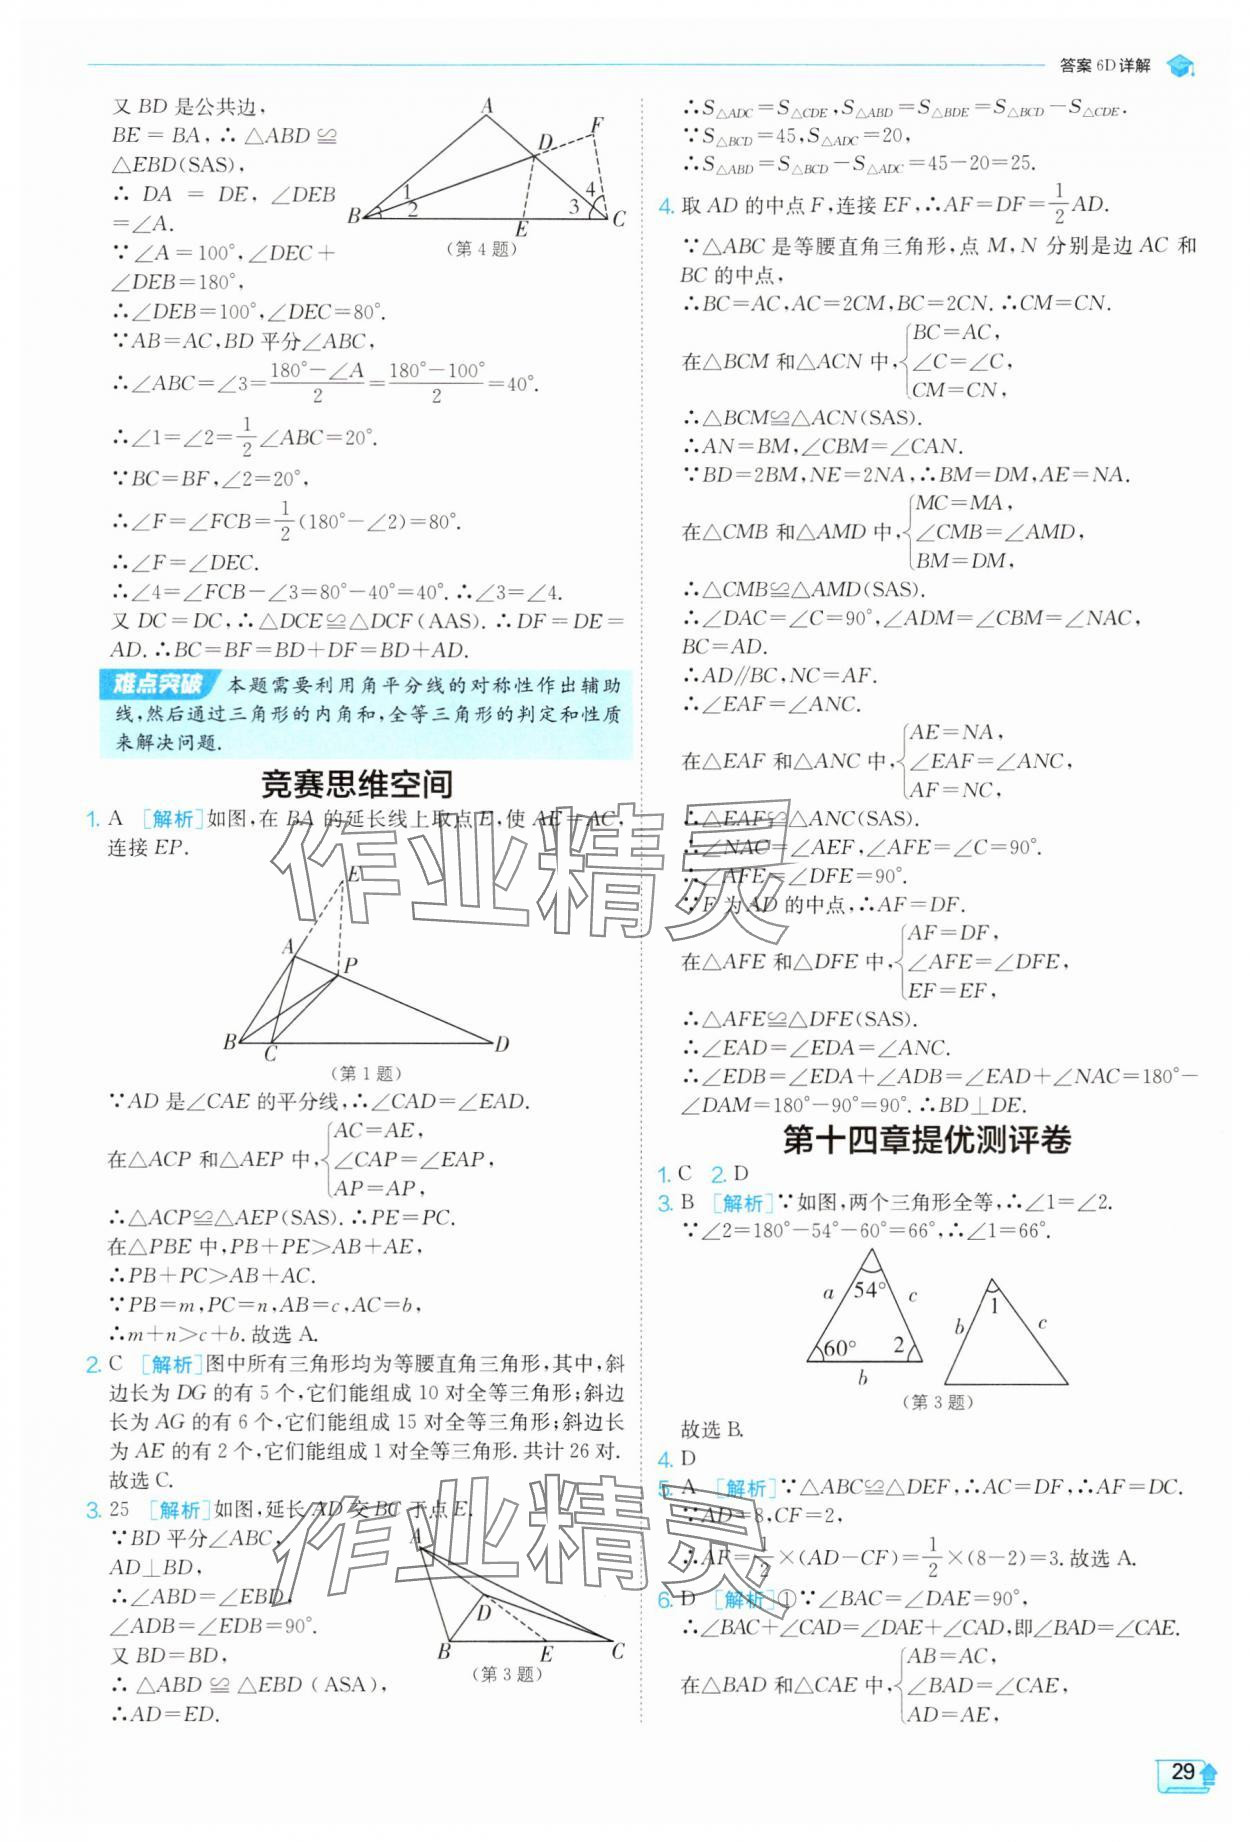 答案 6D 详解
又 BD 是公共边,
BE = BA, ∴ △ABD ≌
△EBD(SAS).
∴ DA = DE, ∠DEB
=∠A.
∵∠A=100°,∠DEC+
∠DEB=180°,
∴∠DEB=100°,∠DEC=80°.
∵AB=AC,BD 平分∠ABC,
∴∠ABC=∠3=(180°-∠A)/2=(180°-100°)/2=40°.
∴∠1=∠2=1/2∠ABC=20°.
∵BC=BF,∠2=20°,
∴∠F=∠FCB=1/2(180°-∠2)=80°.
∴∠F=∠DEC.
∴∠4=∠FCB-∠3=80°-40°=40°.∴∠3=∠4.
又 DC=DC,∴△DCE≌△DCF(AAS).∴DF=DE=
AD.∴BC=BF=BD+DF=BD+AD.
A
F
D
1
2
4
3
B
E
C
(第 4 题)
难点突破 本题需要利用角平分线的对称性作出辅助
线,然后通过三角形的内角和,全等三角形的判定和性质
来解决问题.
竞赛思维空间
1. A [解析]如图,在 BA 的延长线上取点 E,使 AE=AC,
连接 EP.
E
A
P
B
C
D
(第 1 题)
∵AD 是∠CAE 的平分线,∴∠CAD=∠EAD.
在△ACP 和△AEP 中,{AC=AE,
∠CAP=∠EAP,
AP=AP,
∴△ACP≌△AEP(SAS).∴PE=PC.
在△PBE 中,PB+PE>AB+AE,
∴PB+PC>AB+AC.
∵PB=m,PC=n,AB=c,AC=b,
∴m+n>c+b.故选 A.
2. C [解析]图中所有三角形均为等腰直角三角形,其中,斜
边长为 DG 的有 5 个,它们能组成 10 对全等三角形;斜边
长为 AG 的有 6 个,它们能组成 15 对全等三角形;斜边长
为 AE 的有 2 个,它们能组成 1 对全等三角形.共计 26 对.
故选 C.
3. 25 [解析]如图,延长 AD 交 BC 于点 E.
∵BD 平分∠ABC,
AD⊥BD,
∴∠ABD=∠EBD,
∠ADB=∠EDB=90°.
又 BD=BD,
∴ △ABD ≌ △EBD (ASA),
∴AD=ED.
A
D
B
E
C
(第 3 题)
∴S△ADC=S△CDE,S△ABD=S△BDE=S△BCD-S△CDE.
∵S△BCD=45,S△ADC=20,
∴S△ABD=S△BCD-S△ADC=45-20=25.
4. 取 AD 的中点 F,连接 EF,∴AF=DF=1/2AD.
∵△ABC 是等腰直角三角形,点 M,N 分别是边 AC 和
BC 的中点,
∴BC=AC,AC=2CM,BC=2CN.∴CM=CN.
在△BCM 和△ACN 中,{BC=AC,
∠C=∠C,
CM=CN,
∴△BCM≌△ACN(SAS).
∴AN=BM,∠CBM=∠CAN.
∵BD=2BM,NE=2NA,∴BM=DM,AE=NA.
在△CMB 和△AMD 中,{MC=MA,
∠CMB=∠AMD,
BM=DM,
∴△CMB≌△AMD(SAS).
∴∠DAC=∠C=90°,∠ADM=∠CBM=∠NAC,
BC=AD.
∴AD∥BC,NC=AF.
∴∠EAF=∠ANC.
在△EAF 和△ANC 中,{AE=NA,
∠EAF=∠ANC,
AF=NC,
∴△EAF≌△ANC(SAS).
∴∠NAC=∠AEF,∠AFE=∠C=90°.
∴∠AFE=∠DFE=90°.
∵F 为 AD 的中点,∴AF=DF.
在△AFE 和△DFE 中,{AF=DF,
∠AFE=∠DFE,
EF=EF,
∴△AFE≌△DFE(SAS).
∴∠EAD=∠EDA=∠ANC.
∴∠EDB=∠EDA+∠ADB=∠EAD+∠NAC=180°-
∠DAM=180°-90°=90°.∴BD⊥DE.
第十四章提优测评卷
1. C 2. D
3. B [解析]∵如图,两个三角形全等,∴∠1=∠2.
∵∠2=180°-54°-60°=66°,∴∠1=66°.
a
54°
c
60°
2
b
1
b
c
(第 3 题)
故选 B.
4. D
5. A [解析]∵△ABC≌△DEF,∴AC=DF,∴AF=DC.
∵AD=8,CF=2,
∴AF=1/2×(AD-CF)=1/2×(8-2)=3.故选 A.
6. D [解析]①∵∠BAC=∠DAE=90°,
∴∠BAC+∠CAD=∠DAE+∠CAD,即∠BAD=∠CAE.
在△BAD 和△CAE 中,{AB=AC,
∠BAD=∠CAE,
AD=AE,
29
作业精灵
作业精灵